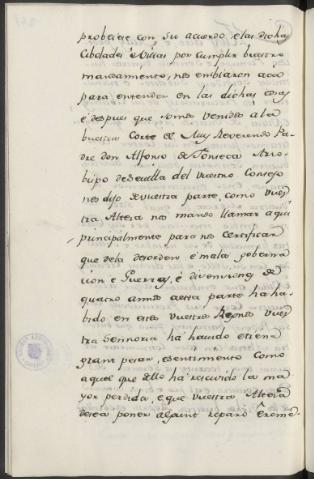 probeiese con su acuerdo, e las dichas
Cibdades é Villas por cumplir buestro
mandamiento, nos embiaron acá
para entender en las dichas cosas
é despues que somos venidos á la
buestra Corte el Muy Reverendo Pa-
dre don Alfonso de Fonseca Arzo-
bispo de Sevilla del vuestro Consejo
nos dijo de vuestra parte, como vues-
tra Alteza nos mandó llamar aqui
principalmente para nos certificar
que dela desorden é mala goberna-
cion é Guerras, é divisiones de
quatro annos aesta parte ha ha-
bido en estos vuestros Reynos vues-
tra Sennoria há havido etiene
gram pesar, esentimiento como
aquel que dello há rescivido la ma-
yor perdida, e que vuestra Alteza
desea poner algunt reparo é reme-